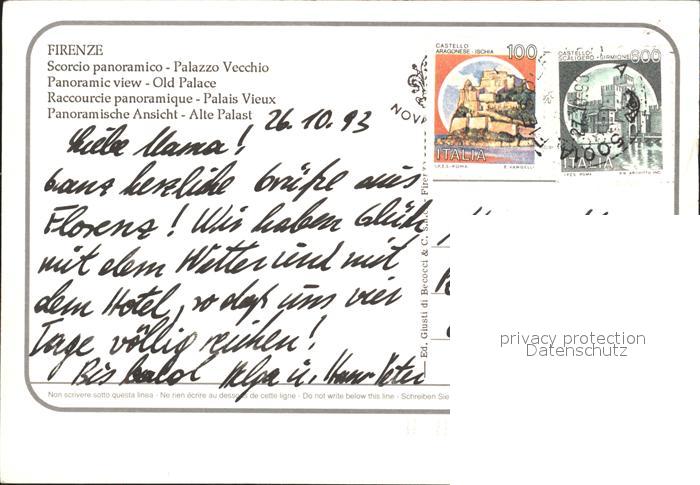 FIRENZE
Scorcio panoramico - Palazzo Vecchio
Panoramic view - Old Palace
Raccourcie panoramique - Palais Vieux
Panoramische Ansicht - Alte Palast
26.10.93
Liebe Mama!
Ganz herzliche Grüße aus
Florenz! Wir haben Glück
mit dem Wetter und mit
dem Hotel, so daß uns vier
Tage völlig reichen!
Bis bald Helga u. Hans-Peter
Non scrivere sotto questa linea - Ne rien écrire au dessous de cette ligne - Do not write below this line - Schreiben Sie
Ed. Giusti di Becocci & C.
CASTELLO
ARAGONESE - ISCHIA
100
ITALIA
I.P.Z.S. - ROMA
CASTELLO
SCALIGERO - SIRMIONE
600
ITALIA
I.P.Z.S. ROMA
NOV
privacy protection
Datenschutz